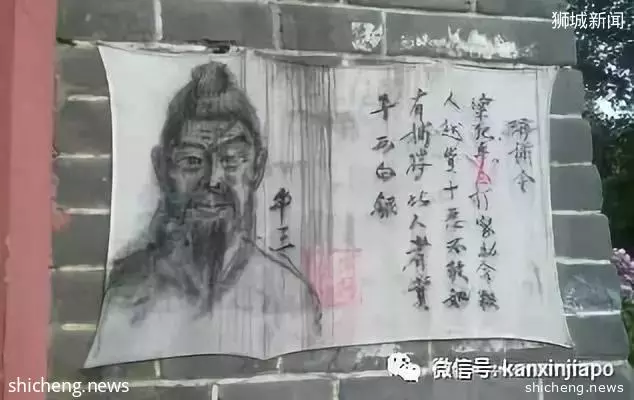 狮城新闻
缉捕令
案犯牟三打家劫舍
人越货十恶不赦如
有捕此人者賞
两白銀
牟三
微信号: kanxinjiapo
shicheng.news
shicheng.news